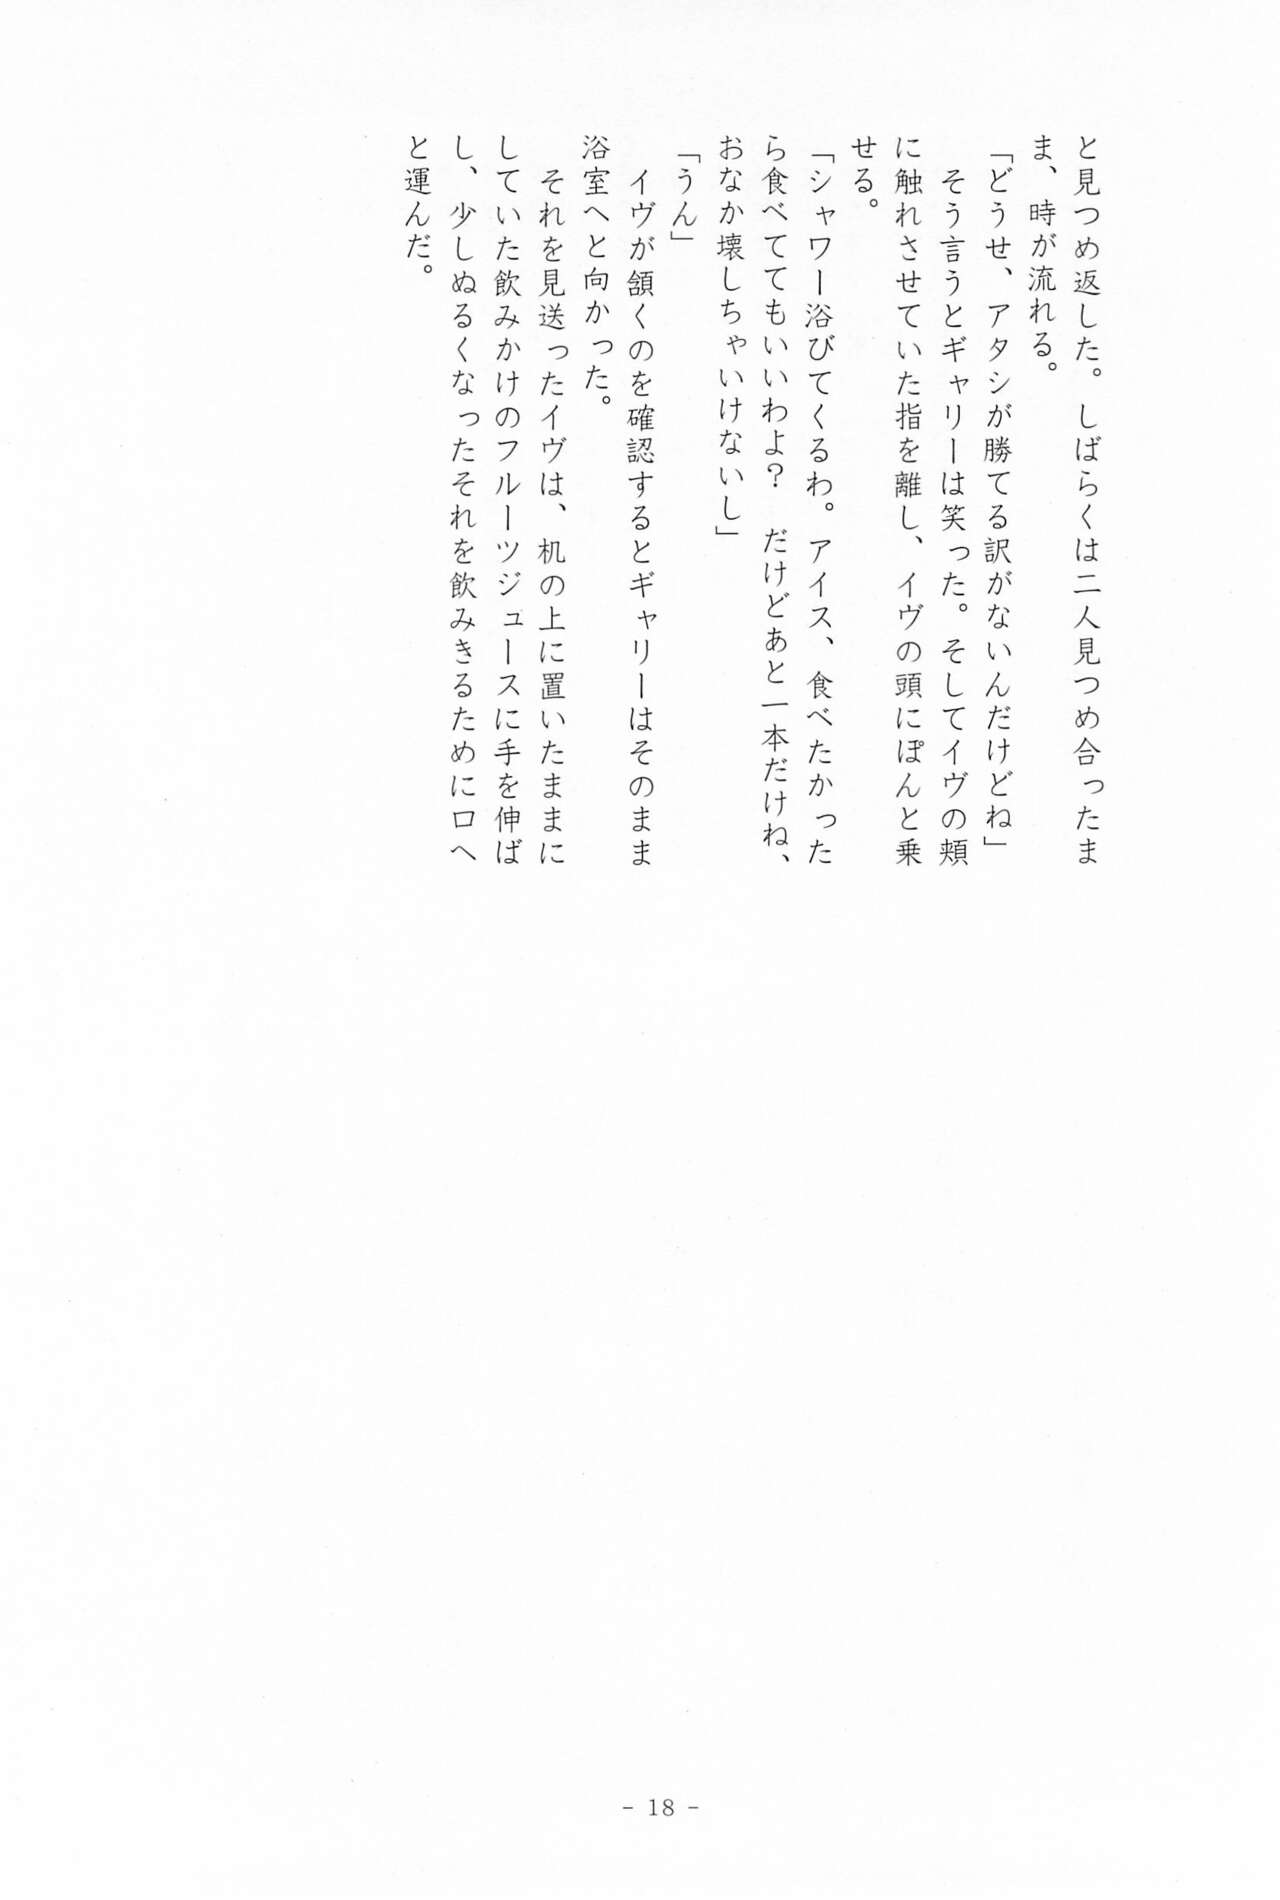 と見つめ返した。しばらくは二人見つめ合ったま
ま、時が流れる。
「どうせ、アタシが勝てる訳がないんだけどね」
　そう言うとギャリーは笑った。そしてイヴの頬
に触れさせていた指を離し、イヴの頭にぽんと乗
せる。
「シャワー浴びてくるわ。アイス、食べたかった
ら食べててもいいわよ？　だけどあと一本だけね、
おなか壊しちゃいけないし」
「うん」
　イヴが頷くのを確認するとギャリーはそのまま
浴室へと向かった。
　それを見送ったイヴは、机の上に置いたままに
していた飲みかけのフルーツジュースに手を伸ば
し、少しぬるくなったそれを飲みきるために口へ
と運んだ。
- 18 -